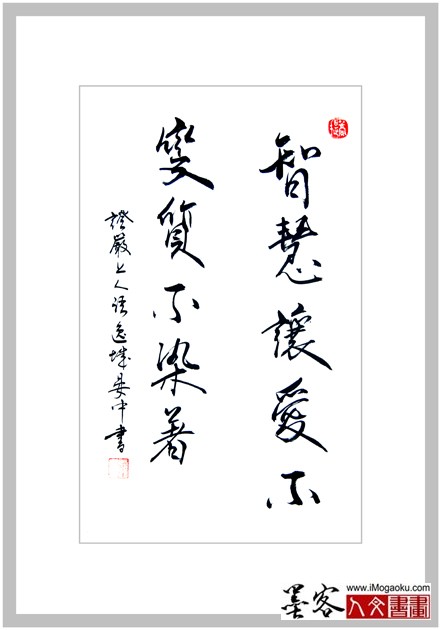 智慧讓愛不
變質不染著
證嚴上人語逸城晏中書
墨客
www.iMogaoku.com
人文書畫